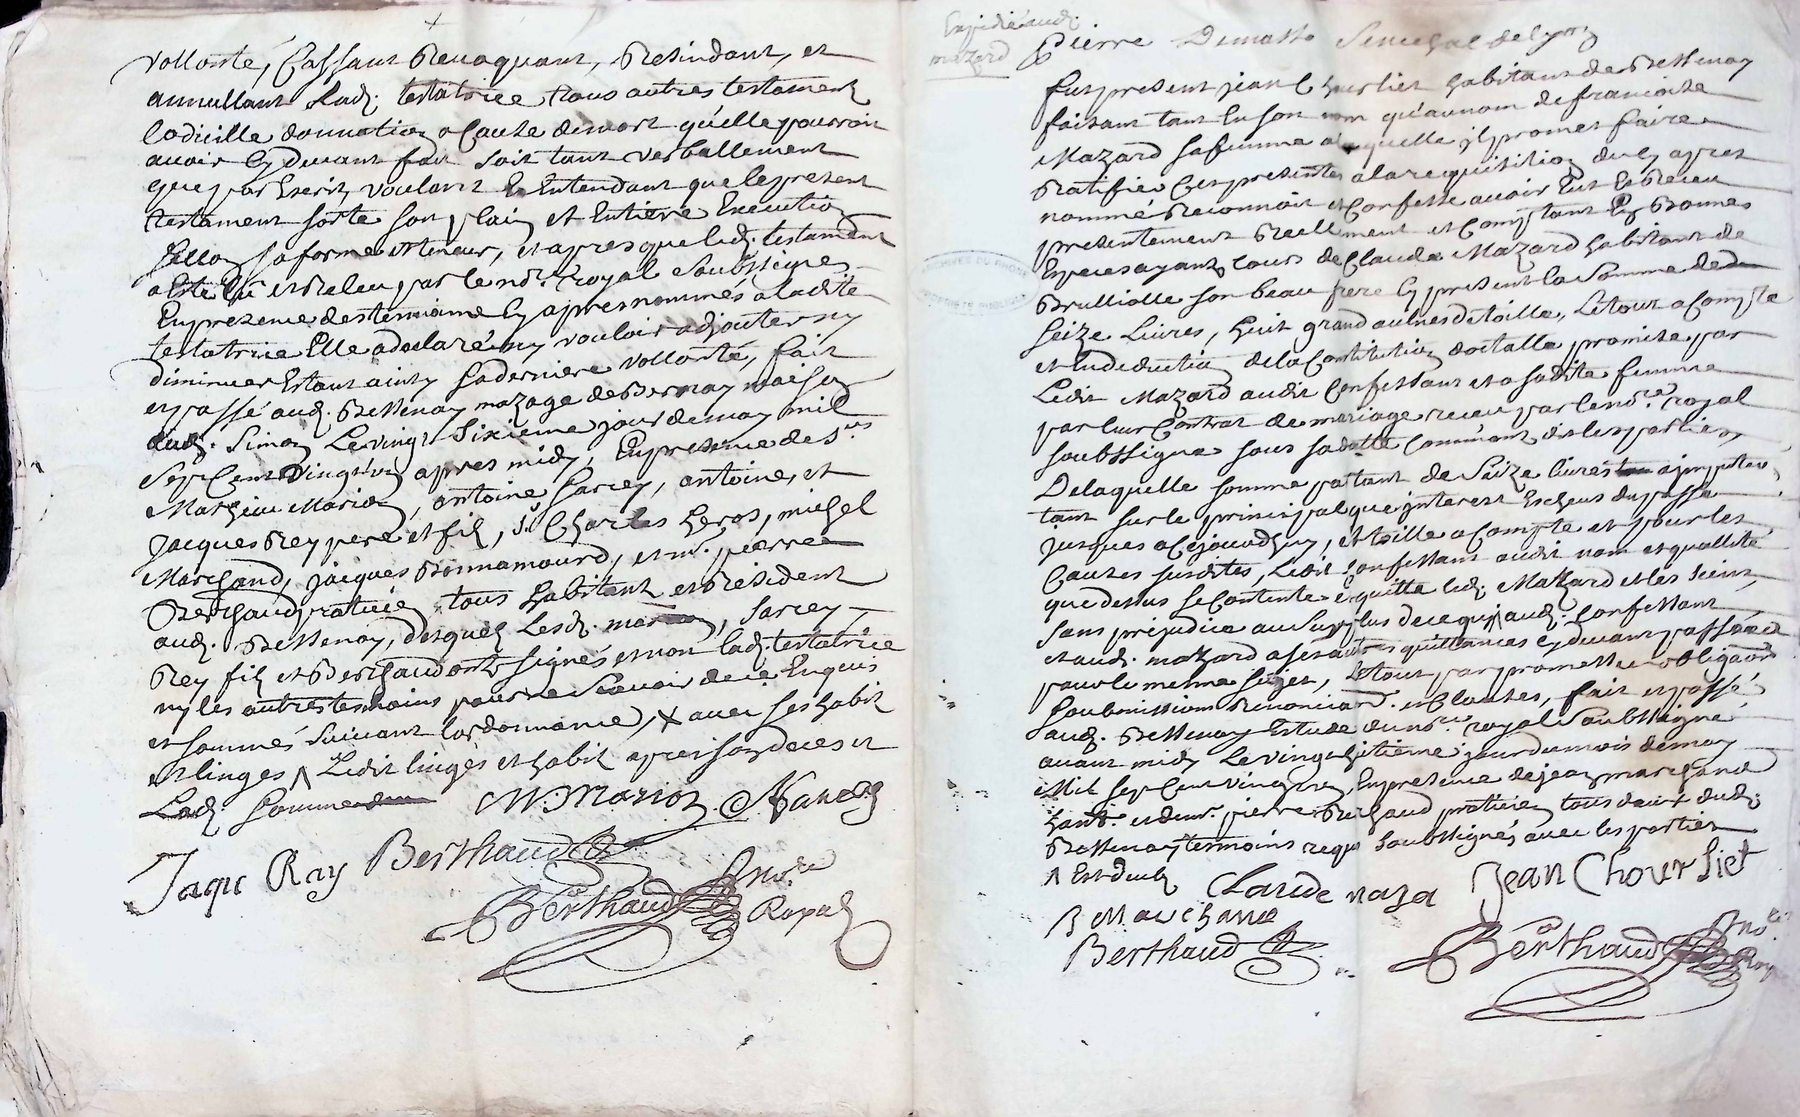 vollonté, Cassant Revoquant, Resindant, et
annullant Lad. testatrice tous autres testament
codicille donnation a Cause de mort qu'elle pourroit
avoir Cy devant fait soit tant verballement
que par Escrit voulant Et Entendant que le present
testament sorte son plain et Entiere Execution
sellon sa forme et teneur, et apres que led. testament
a Esté Lû et Releu par le nore. Royal Soubssigne
En presence des temoins Cy apres nommés a ladite
testatrice Elle a declaré n'y vouloir adjouter ny
diminuer Estant ainsy sa derniere vollonté, fait
et passé aud. Bessenay mazage de Bernay maison
dud. Simon Le vingt Sixieme jour de may mil
Sept Cent vingt apres midy, En presence de Srs
Mathieu Marion, antoine Sarcey, antoine, et
Jacques Rey pere et fils, Sr. Charles Gros, michel
Marchand, jacques Bonnamourd, et mr. pierre
Berthaud praticien tous habitant et Resident
aud. Bessenay, desquels Lesd. marion, Sarcey
Rey fils et Berthaud ont signés et non lad. testatrice
ny les autres temoins pour ne Scavoir de ce Enquis
et sommés suivant l'ordonnance, X avec ses habit
et linges Λ Ledit linges et habit apres son deces et
Lad. Somme
M. Marion A Sarcey
Jaque Ray Berthaud
Berthaud nore
Royal
Expedié aud.
mazard
Pierre Dumas Senechal de Lyon
fut present jean Chourliet habitant de Bessenay
faisant tant En son nom qu'au nom de francoise
Mazard sa femme a laquelle il promet faire
Ratifier Ces presentes a la requisition du Cy apres
nommé Reconnoit et Confesse avoir Eut Et Receu
presentement Reellement et Comptant En Bonnes
Especes ayant Cours de Claude Mazard habitant de
Brulliolle son beau frere Cy present La Somme de
Seize Livres, huit grand aulnes de toille, Le tout a Compte
et En deduction de la Constitution dottalle promise par
Ledit Mazard audit Confessant et a sadite femme
par leur Contrat de mariage receu par le nore. royal
soubssigne sous sa datte Comm'ont dit les parties
De laquelle somme partant de Seize livres a jmputer
tant sur le principal que jnterest Escheus du passé
jusques a Cejourdhuy, et toille a Compte et pour les
Causes susdites, Ledit Confessant audit nom et quallité
que dessus se Contente Et quitte led. Mazard et les siens
sans prejudice au Surplus de ce qui aud. Confessant
et aud. mazard a ses autres quittances cy devant passées
pour le meme sujet, Le tout par promesse obligaõns
Soubmissions Renonciaõns. et Clauses, fait et passé
aud. Bessenay Estude du nore. royal Soubssigné
avant midy Le vingt huitieme jour du mois de may
Mil Sept Cent vingt, En presence de jean marchand
habt. et de mr. pierre Berthaud praticien tous deux dud.
Bessenay temoins requis Soubssignés avec les parties
Claude maza Jean Chourliet
Marchand
Berthaud Berthaud nore
Roy